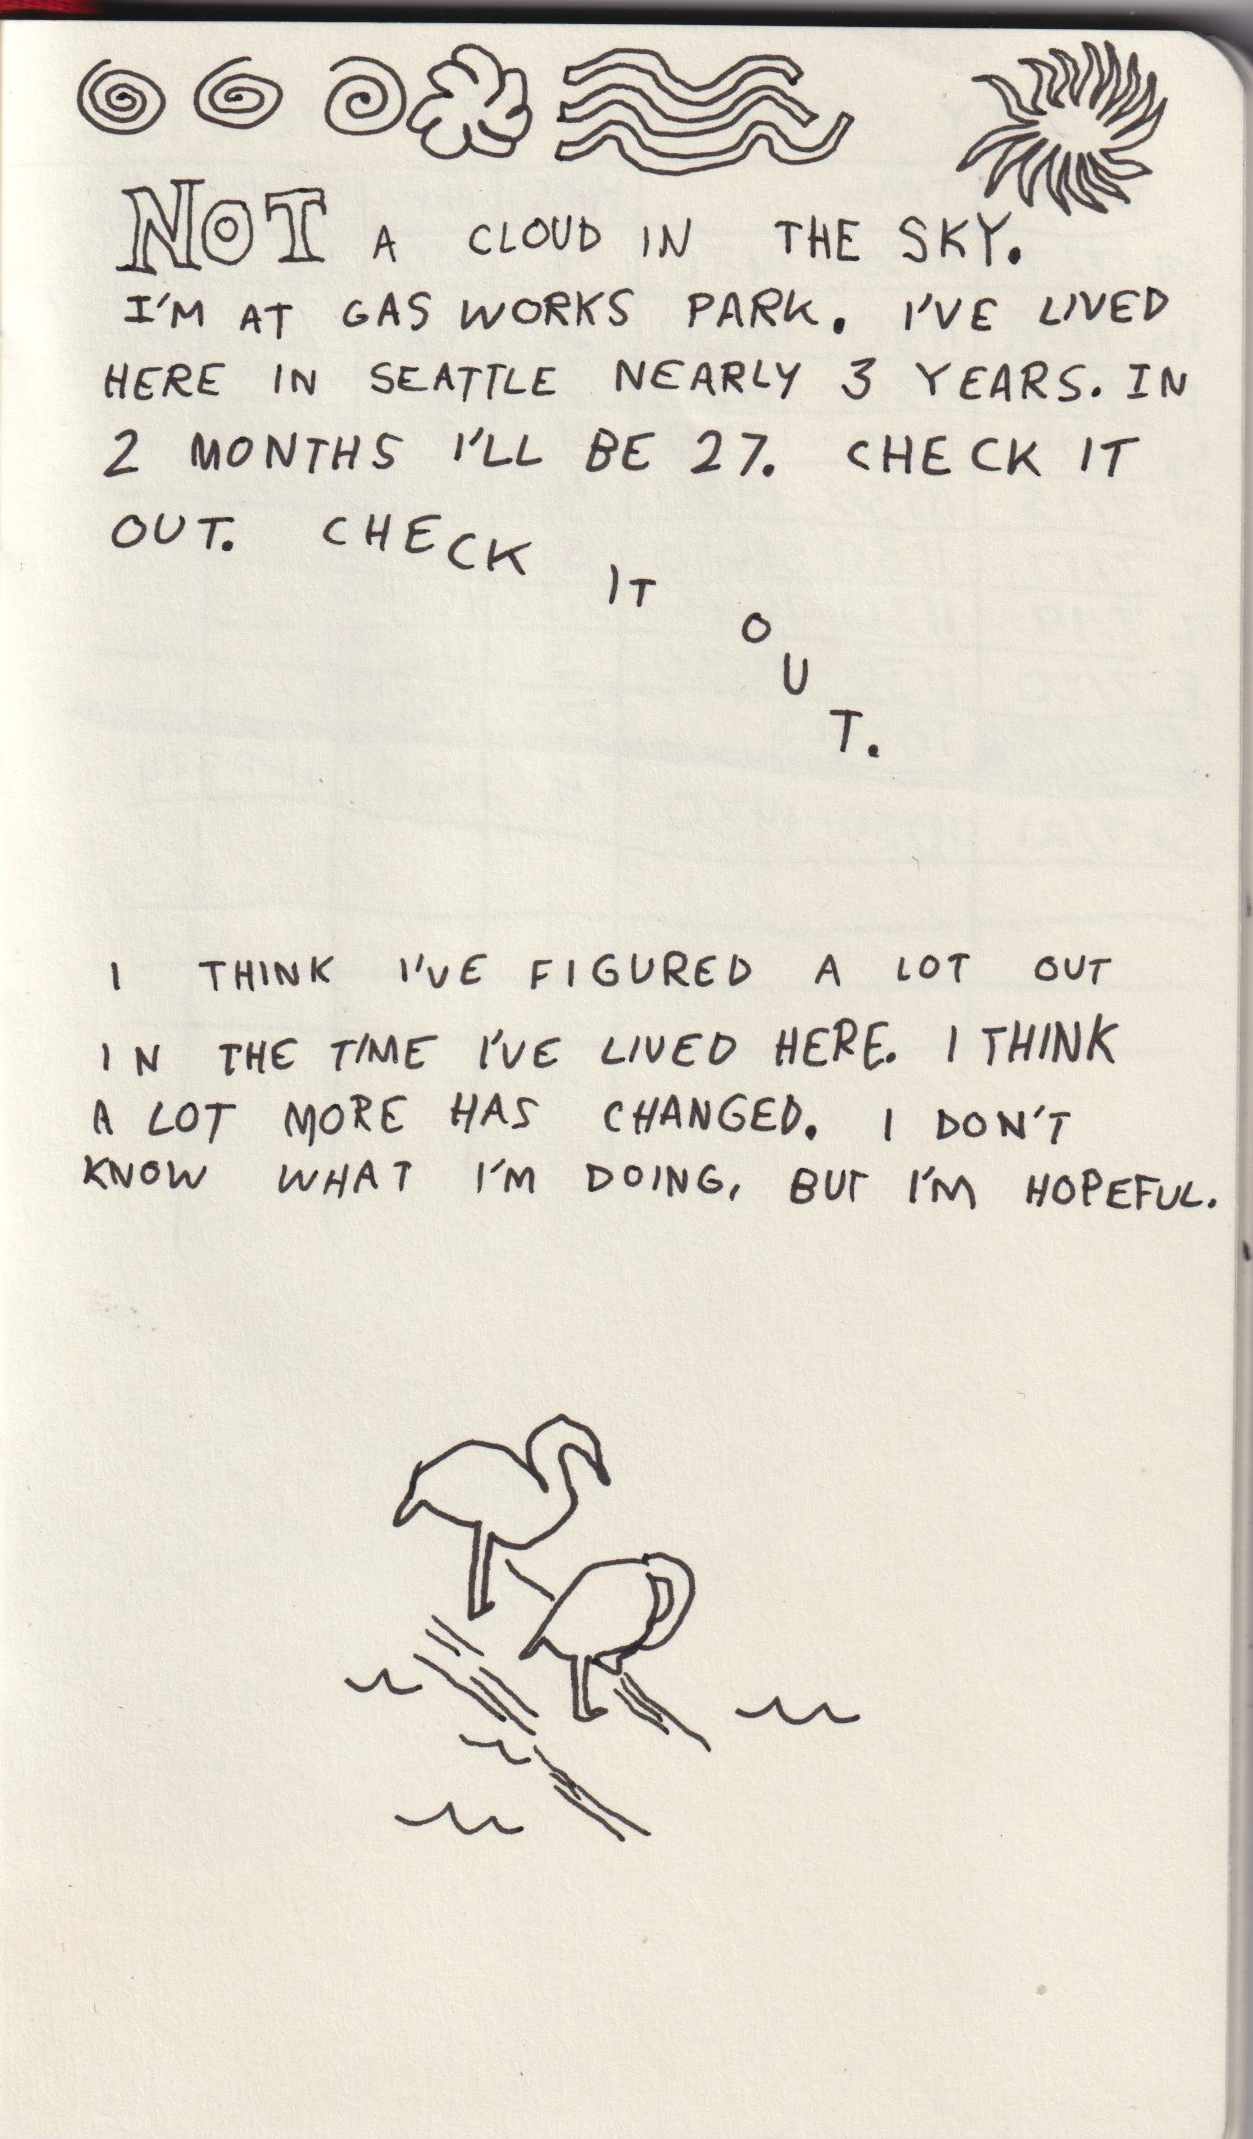 NOT A CLOUD IN THE SKY.
I'M AT GAS WORKS PARK. I'VE LIVED
HERE IN SEATTLE NEARLY 3 YEARS. IN
2 MONTHS I'LL BE 27. CHECK IT
OUT. CHECK IT OUT.
I THINK I'VE FIGURED A LOT OUT
IN THE TIME I'VE LIVED HERE. I THINK
A LOT MORE HAS CHANGED. I DON'T
KNOW WHAT I'M DOING, BUT I'M HOPEFUL.